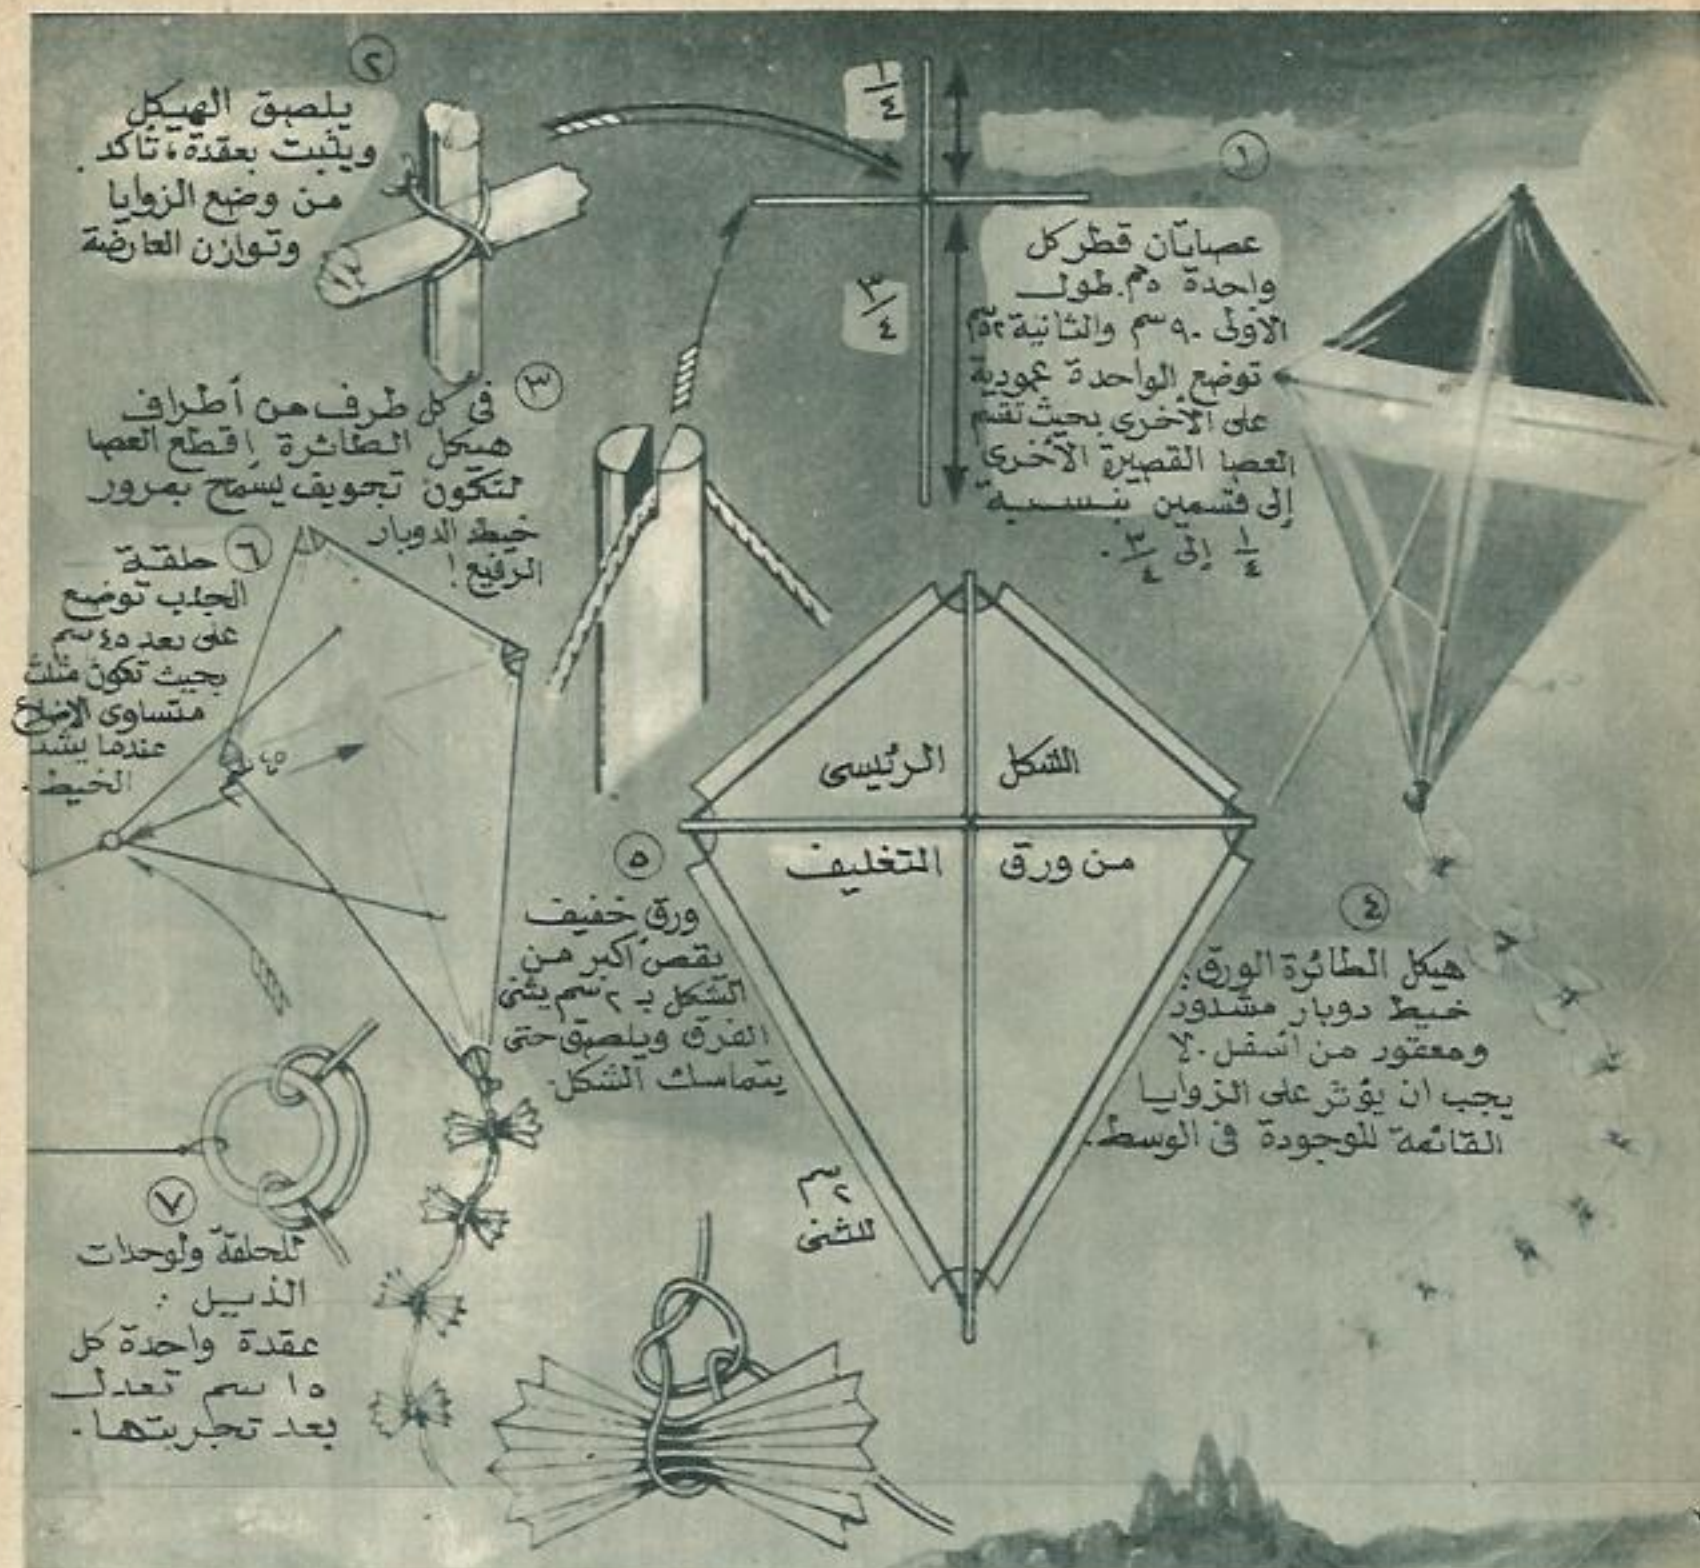 ١
عصايتان قطر كل
واحدة ٥مم. طول
الأولى ٩٠ سم والثانية ٥٢سم
توضع الواحدة عمودية
على الأخرى بحيث تقسم
العصا القصيرة الأخرى
إلى قسمين بنسبة
١/٤ إلى ٣/٤ .
١/٤
٣/٤
٢
يلصق الهيكل
ويثبت بعقدة، تأكد
من وضع الزوايا
وتوازن العارضة
٣
فى كل طرف من أطراف
هيكل الطائرة إقطع العصا
لتكون تجويف يسمح بمرور
خيط الدوبار
الرفيع!
٤
هيكل الطائرة الورق:
خيط دوبار مشدود
ومعقور من أسفل. لا
يجب ان يؤثر على الزوايا
القائمة الموجودة فى الوسط.
٥
ورق خفيف
يقص أكبر من
الشكل بـ ٢ سم يثنى
الفرق ويلصق حتى
يتماسك الشكل.
الشكل الرئيسى
من ورق التغليف
٢سم
للثنى
٦
حلقة
الجذب توضع
على بعد ٤٥ سم
بحيث تكون مثلث
متساوى الاضلاع
عندما يشد
الخيط.
٤٥ سم
٧
للحلقة ولوحدات
الذيل:
عقدة واحدة كل
١٥ سم تعدل
بعد تجربتها.